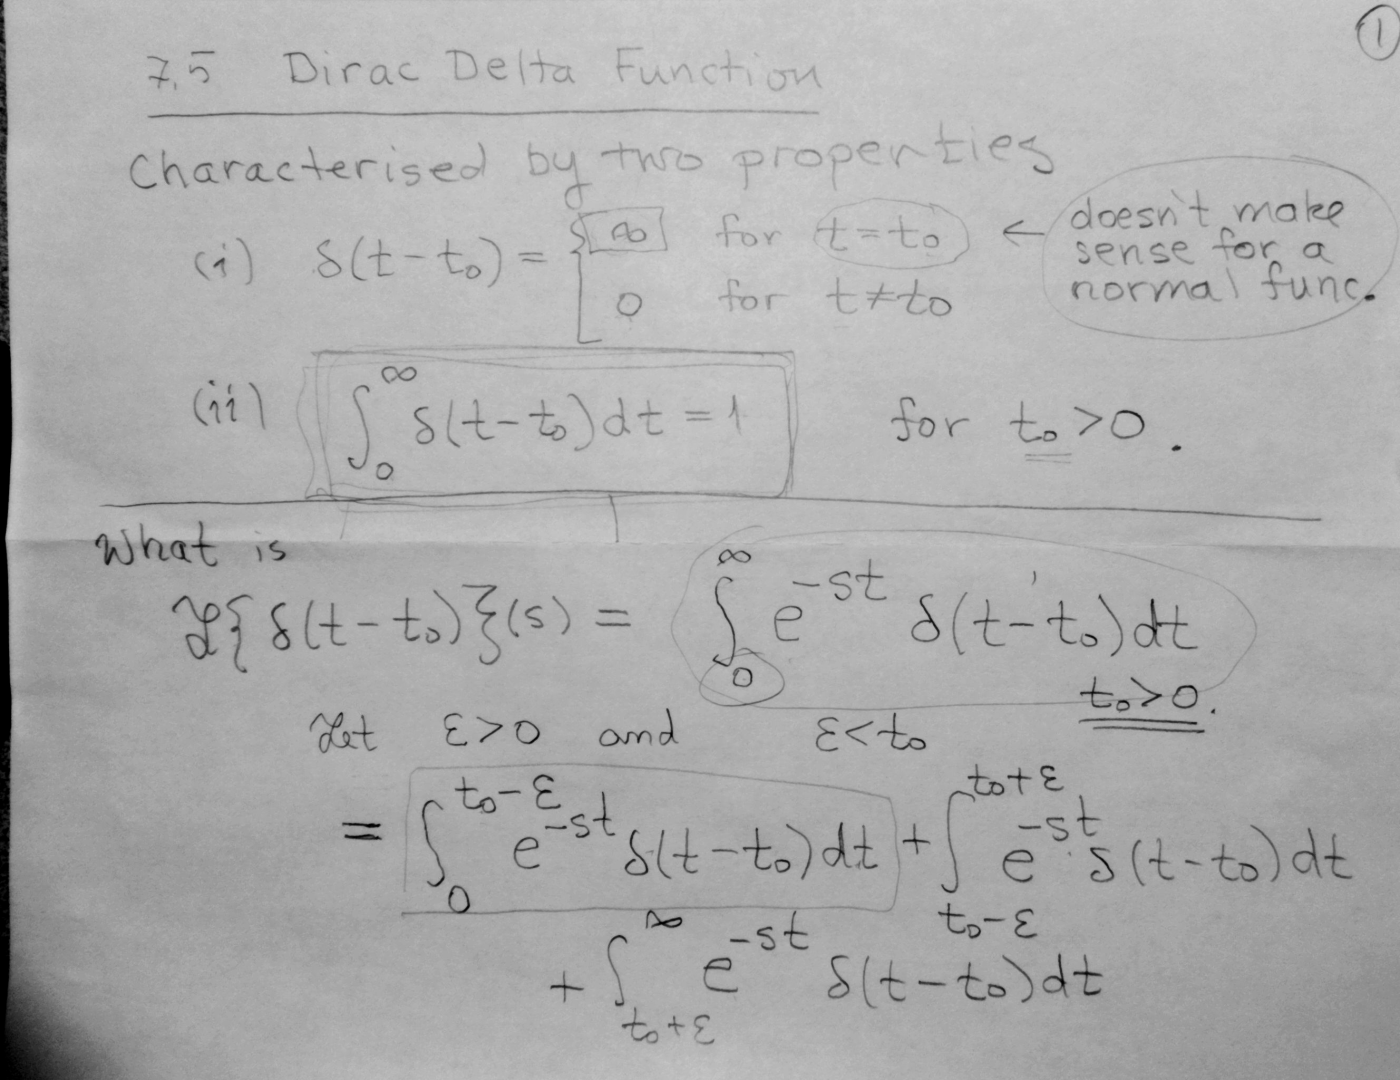 ①
7.5 Dirac Delta Function
Characterised by two properties
(i) δ(t-t₀) = { ∞ for t=t₀ ← doesn't make sense for a normal func.
0 for t≠t₀
(ii) ∫₀^∞ δ(t-t₀)dt = 1 for t₀>0.
What is
ℒ{δ(t-t₀)}(s) = ∫₀^∞ e^{-st} δ(t-t₀)dt
t₀>0.
Let ε>0 and ε<t₀
= ∫₀^{t₀-ε} e^{-st} δ(t-t₀)dt + ∫_{t₀-ε}^{t₀+ε} e^{-st} δ(t-t₀)dt
+ ∫_{t₀+ε}^∞ e^{-st} δ(t-t₀)dt